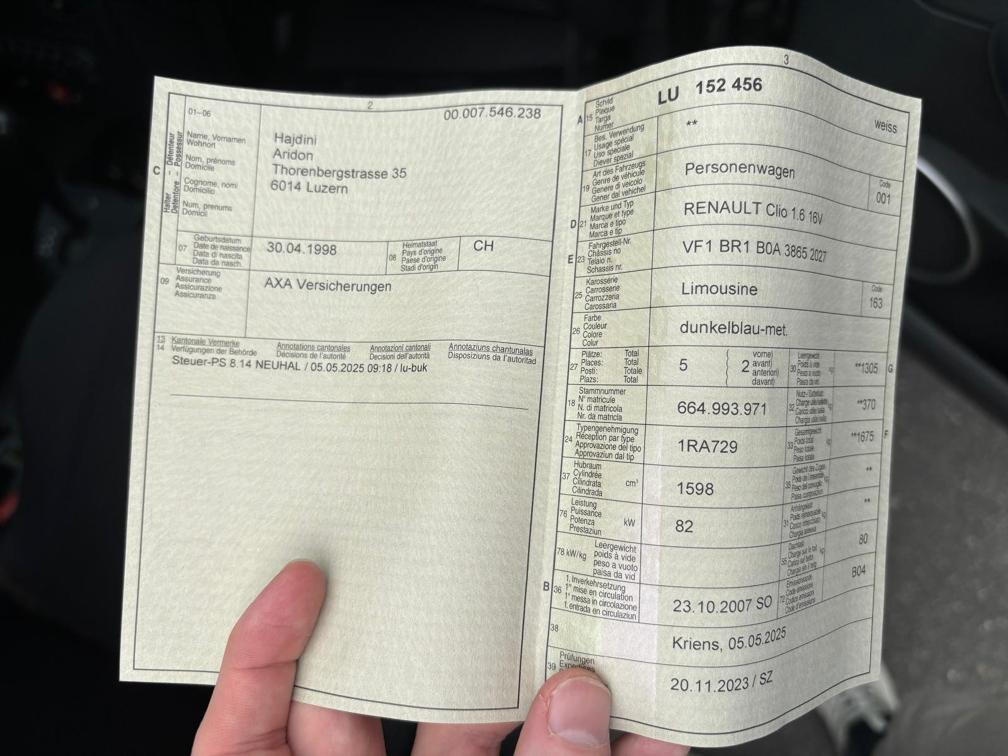 2
00.007.546.238
01–06
C
Halter - Détenteur
Detentore - Possessur
Name, Vornamen
Wohnort
Nom, prénoms
Domicile
Cognome, nomi
Domicilio
Num, prenums
Domicil
Hajdini
Aridon
Thorenbergstrasse 35
6014 Luzern
07
Geburtsdatum
Date de naissance
Data di nascita
Data da nasch.
30.04.1998
08
Heimatstaat
Pays d'origine
Paese d'origine
Stadi d'origin
CH
09
Versicherung
Assurance
Assicurazione
Assicuranza
AXA Versicherungen
13
14
Kantonale Vermerke
Verfügungen der Behörde
Annotations cantonales
Décisions de l'autorité
Annotazioni cantonali
Decisioni dell'autorità
Annotaziuns chantunalas
Disposiziuns da l'autoritad
Steuer-PS 8.14 NEUHAL / 05.05.2025 09:18 / lu-buk
3
A
15
Schild
Plaque
Targa
Numer
LU 152 456
weiss
17
Bes. Verwendung
Usage spécial
Uso speciale
Diever spezial
**
19
Art des Fahrzeugs
Genre de véhicule
Genere di veicolo
Gener dal vehichel
Personenwagen
Code
001
D
21
Marke und Typ
Marque et type
Marca e tipo
Marca e tip
RENAULT Clio 1.6 16V
E
23
Fahrgestell-Nr.
Châssis no
Telaio n.
Schassis nr.
VF1 BR1 B0A 3865 2027
25
Karosserie
Carrosserie
Carrozzeria
Carossaria
Limousine
Code
163
26
Farbe
Couleur
Colore
Colur
dunkelblau-met.
27
Plätze: Total
Places: Total
Posti: Totale
Plazs: Total
5
2
vorne
avant
anteriori
davant
30
Leergewicht
Poids à vide
Peso a vuoto
Paisa da vid
kg
**1305
G
18
Stammnummer
N° matricule
N. di matricola
Nr. da matricla
664.993.971
32
kg
**370
24
Typengenehmigung
Réception par type
Approvazione del tipo
Approvaziun dal tip
1RA729
33
Gesamtgewicht
Poids total
Peso totale
Paisa totala
kg
**1675
F
37
Hubraum
Cylindrée
Cilindrata
Cilindrada
cm³
1598
35
**
76
Leistung
Puissance
Potenza
Prestaziun
kW
82
31
**
78 kW/kg
Leergewicht
poids à vide
peso a vuoto
paisa da vid
80
B
36
1. Inverkehrsetzung
1re mise en circulation
1a messa in circolazione
1. entrada en circulaziun
23.10.2007 SO
72
Emissionscode
Code émissions
Codice emissioni
Code d'emissiuns
B04
38
Kriens, 05.05.2025
39
Prüfungen
20.11.2023 / SZ